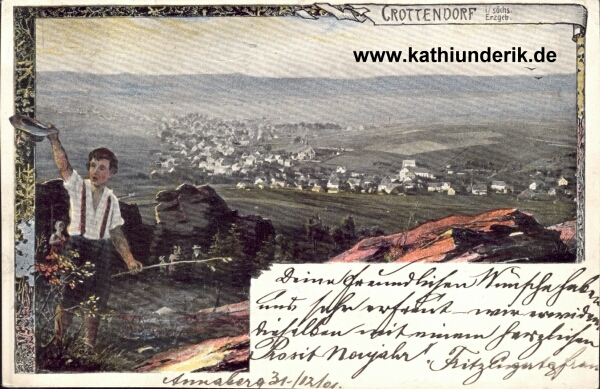 CROTTENDORF i/ sächs. Erzgeb.
www.kathiunderik.de
Deine freundlichen Wünsche haben
uns sehr erfreut – wir erwidern
dieselben mit einem herzlichen
Prosit Neujahr!
Annaberg 31/12/01.